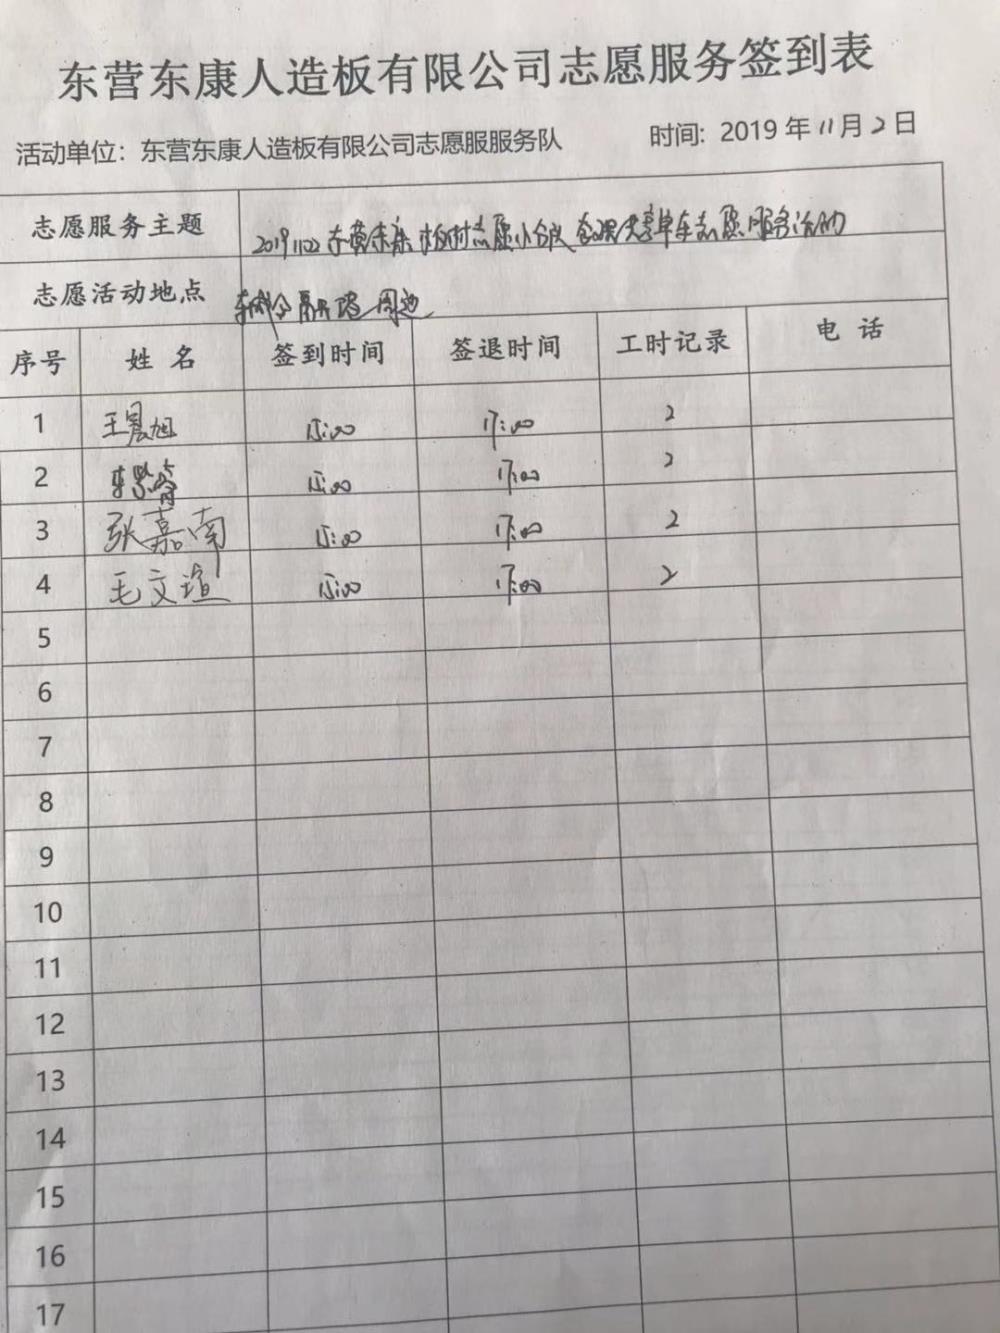 东营东康人造板有限公司志愿服务签到表
活动单位：东营东康人造板有限公司志愿服服务队 时间：2019年11月2日
志愿服务主题 20191102东营东康板材志愿小分队 共享单车志愿服务活动
志愿活动地点 周边
序号 姓名 签到时间 签退时间 工时记录 电话
1 王晨旭 15:00 17:00 2
2 15:00 17:00 2
3 张嘉南 15:00 17:00 2
4 毛文 15:00 17:00 2
5
6
7
8
9
10
11
12
13
14
15
16
17